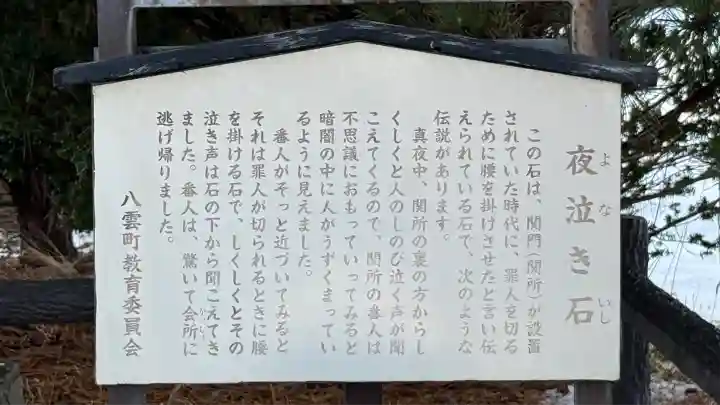 夜泣き石
よなきいし
この石は、関門(関所)が設置
されていた時代に、罪人を切る
ために腰を掛けさせたと言い伝
えられている石で、次のような
伝説があります。
真夜中、関所の裏の方からし
くしくと人のしのび泣く声が聞
こえてくるので、関所の番人は
不思議におもっていってみると
暗闇の中に人がうずくまってい
るように見えました。
番人がそっと近づいてみると
それは罪人が切られるときに腰
を掛ける石で、しくしくとその
泣き声は石の下から聞こえてき
ました。番人は、驚いて会所に
かいしょ
逃げ帰りました。
八雲町教育委員会